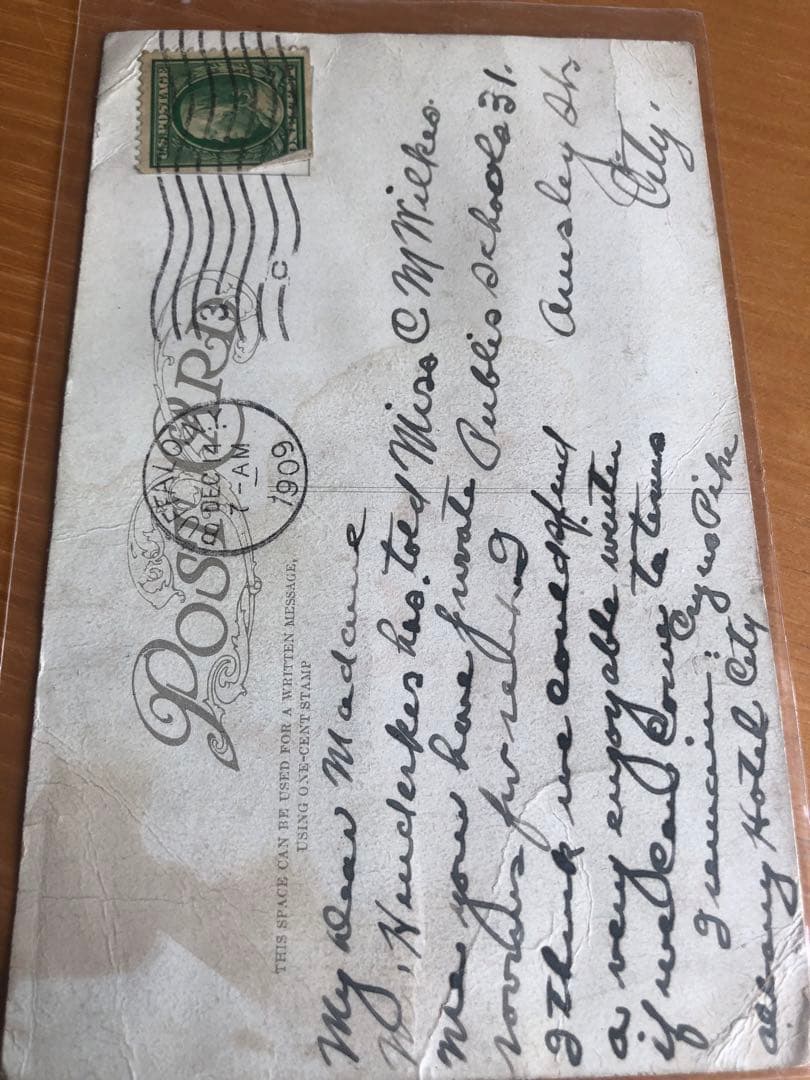 U.S. POSTAGE
BUFFALO
DEC 4
7-AM
1909
3
C
POST CARD
THIS SPACE CAN BE USED FOR A WRITTEN MESSAGE,
USING ONE-CENT STAMP
My Dear Madame
has told
me you have private
rooms for
I think we could spend
a very enjoyable winter
if we can come to terms
I remain
Albany Hotel City
Miss C M Wilkes.
Public Schools 31.
Ansley St
City.